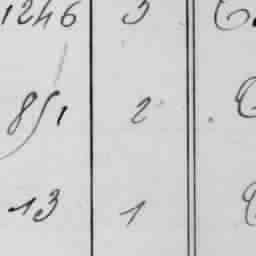 1246 3
851 2
13 1